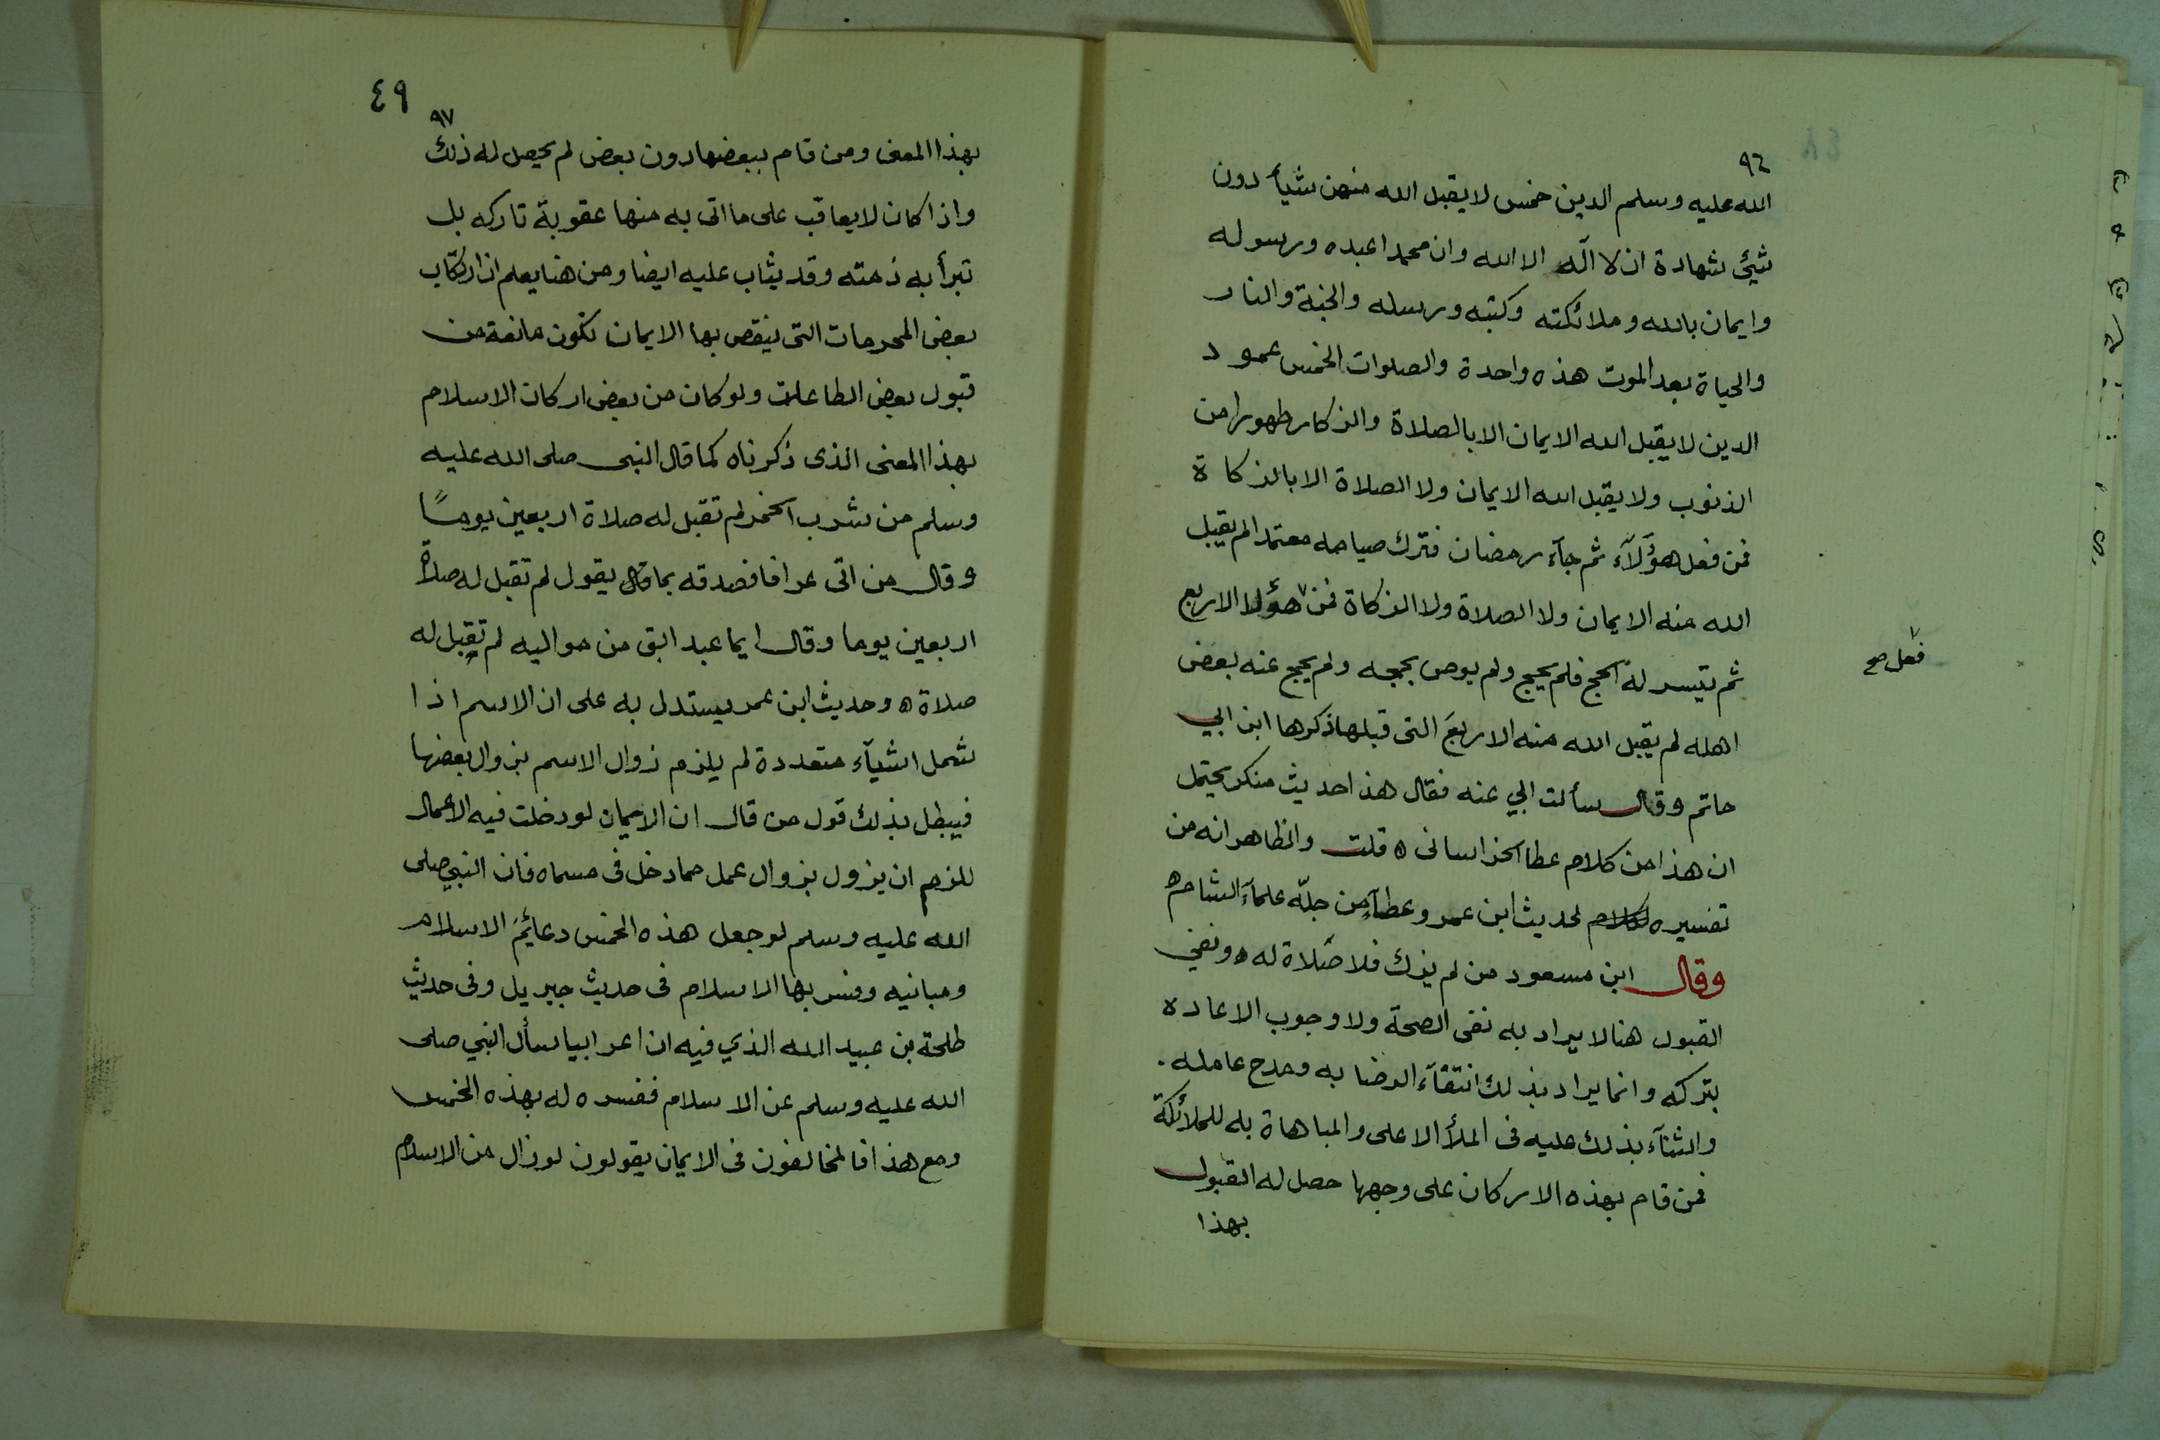 ٩٦
الله عليه وسلم الدين خمس لا يقبل الله منهن شيأ دون
شيئ شهادة ان لا اله الا الله وان محمدا عبده ورسوله
وايمان بالله وملائكته وكتبه ورسله والجنة والنار
والحياة بعد الموت هذه واحدة والصلوات الخمس عمود
الدين لا يقبل الله الايمان الا بالصلاة والزكاة طهورا من
الذنوب ولا يقبل الله الايمان ولا الصلاة الا بالزكاة
فمن فعل هؤلآء ثم جآء رمضان فترك صيامه معتمدا لم يقبل
الله منه الايمان ولا الصلاة ولا الزكاة فمن هؤلا الاربع
فعل صح
ثم تيسر له الحج فلم يحج ولم يوص بحجه ولم يحج عنه بعض
اهله لم يقبل الله منه الاربع التى قبلها ذكرها ابن ابي
حاتم وقال سألت ابي عنه فقال هذا حديث منكر يحتمل
ان هذا من كلام عطا الخراسانى ه قلت والظاهر انه من
تفسيره لحديث ابن عمر وعطآء من جلّة علمآء الشام ه
وقال ابن مسعود من لم يزك فلا صلاة له ه ونفي
القبول هنا لا يراد به نفى الصحة ولا وجوب الاعاده
بتركه وانما يراد بذلك انتفآء الرضا به ومدح عامله .
والثنآء بذلك عليه فى الملأ الاعلى والمباهاة به للملائكة
فمن قام بهذه الاركان على وجهها حصل له القبول
بهذا
٤٩
٩٧
بهذا المعنى ومن قام ببعضها دون بعض لم يحصل له ذلك
واذا كان لا يعاقب على ما اتى به منها عقوبة تاركه بل
تبرأ به ذمته وقد يثاب عليه ايضا ومن هنا يعلم ان ارتكاب
بعض المحرمات التى ينقص بها الايمان تكون مانعة من
قبول بعض الطاعات ولو كان من بعض اركان الاسلام
بهذا المعنى الذى ذكرناه كما قال النبى صلى الله عليه
وسلم من شرب الخمر لم تقبل له صلاة اربعين يومًا
وقال من اتى عرافا فصدقه بما قال يقول لم تقبل له صلاة
اربعين يوما وقال ايما عبد ابق من مواليه لم تقبل له
صلاة ه وحديث ابن عمر يستدل به على ان الاسم اذا
شمل اشيآء متعددة لم يلزم زوال الاسم بزوال بعضها
فيبطل بذلك قول من قال ان الايمان لو دخلت فيه الاعمال
للزم ان يزول بزوال عمل مما دخل فى مسماه فان النبي صلى
الله عليه وسلم لو جعل هذه الخمس دعايم الاسلام
ومبانيه وفسر بها الاسلام فى حديث جبريل وفى حديث
طلحة بن عبيد الله الذي فيه ان اعرابيا سأل النبي صلى
الله عليه وسلم عن الاسلام ففسره له بهذه الخمس
ومع هذا فالمخالفون فى الايمان يقولون لو زال من الاسلام